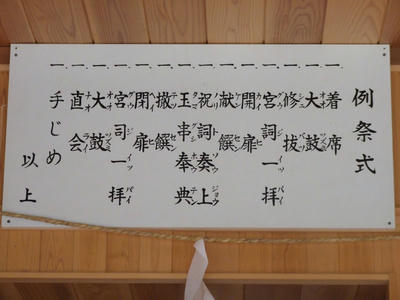 例祭式
一、着席
一、大太鼓
一、修祓
一、宮司一拝
一、開扉
一、献饌
一、祝詞奏上
一、玉串奉典
一、撤饌
一、閉扉
一、宮司一拝
一、大太鼓
一、直会
手じめ
以上